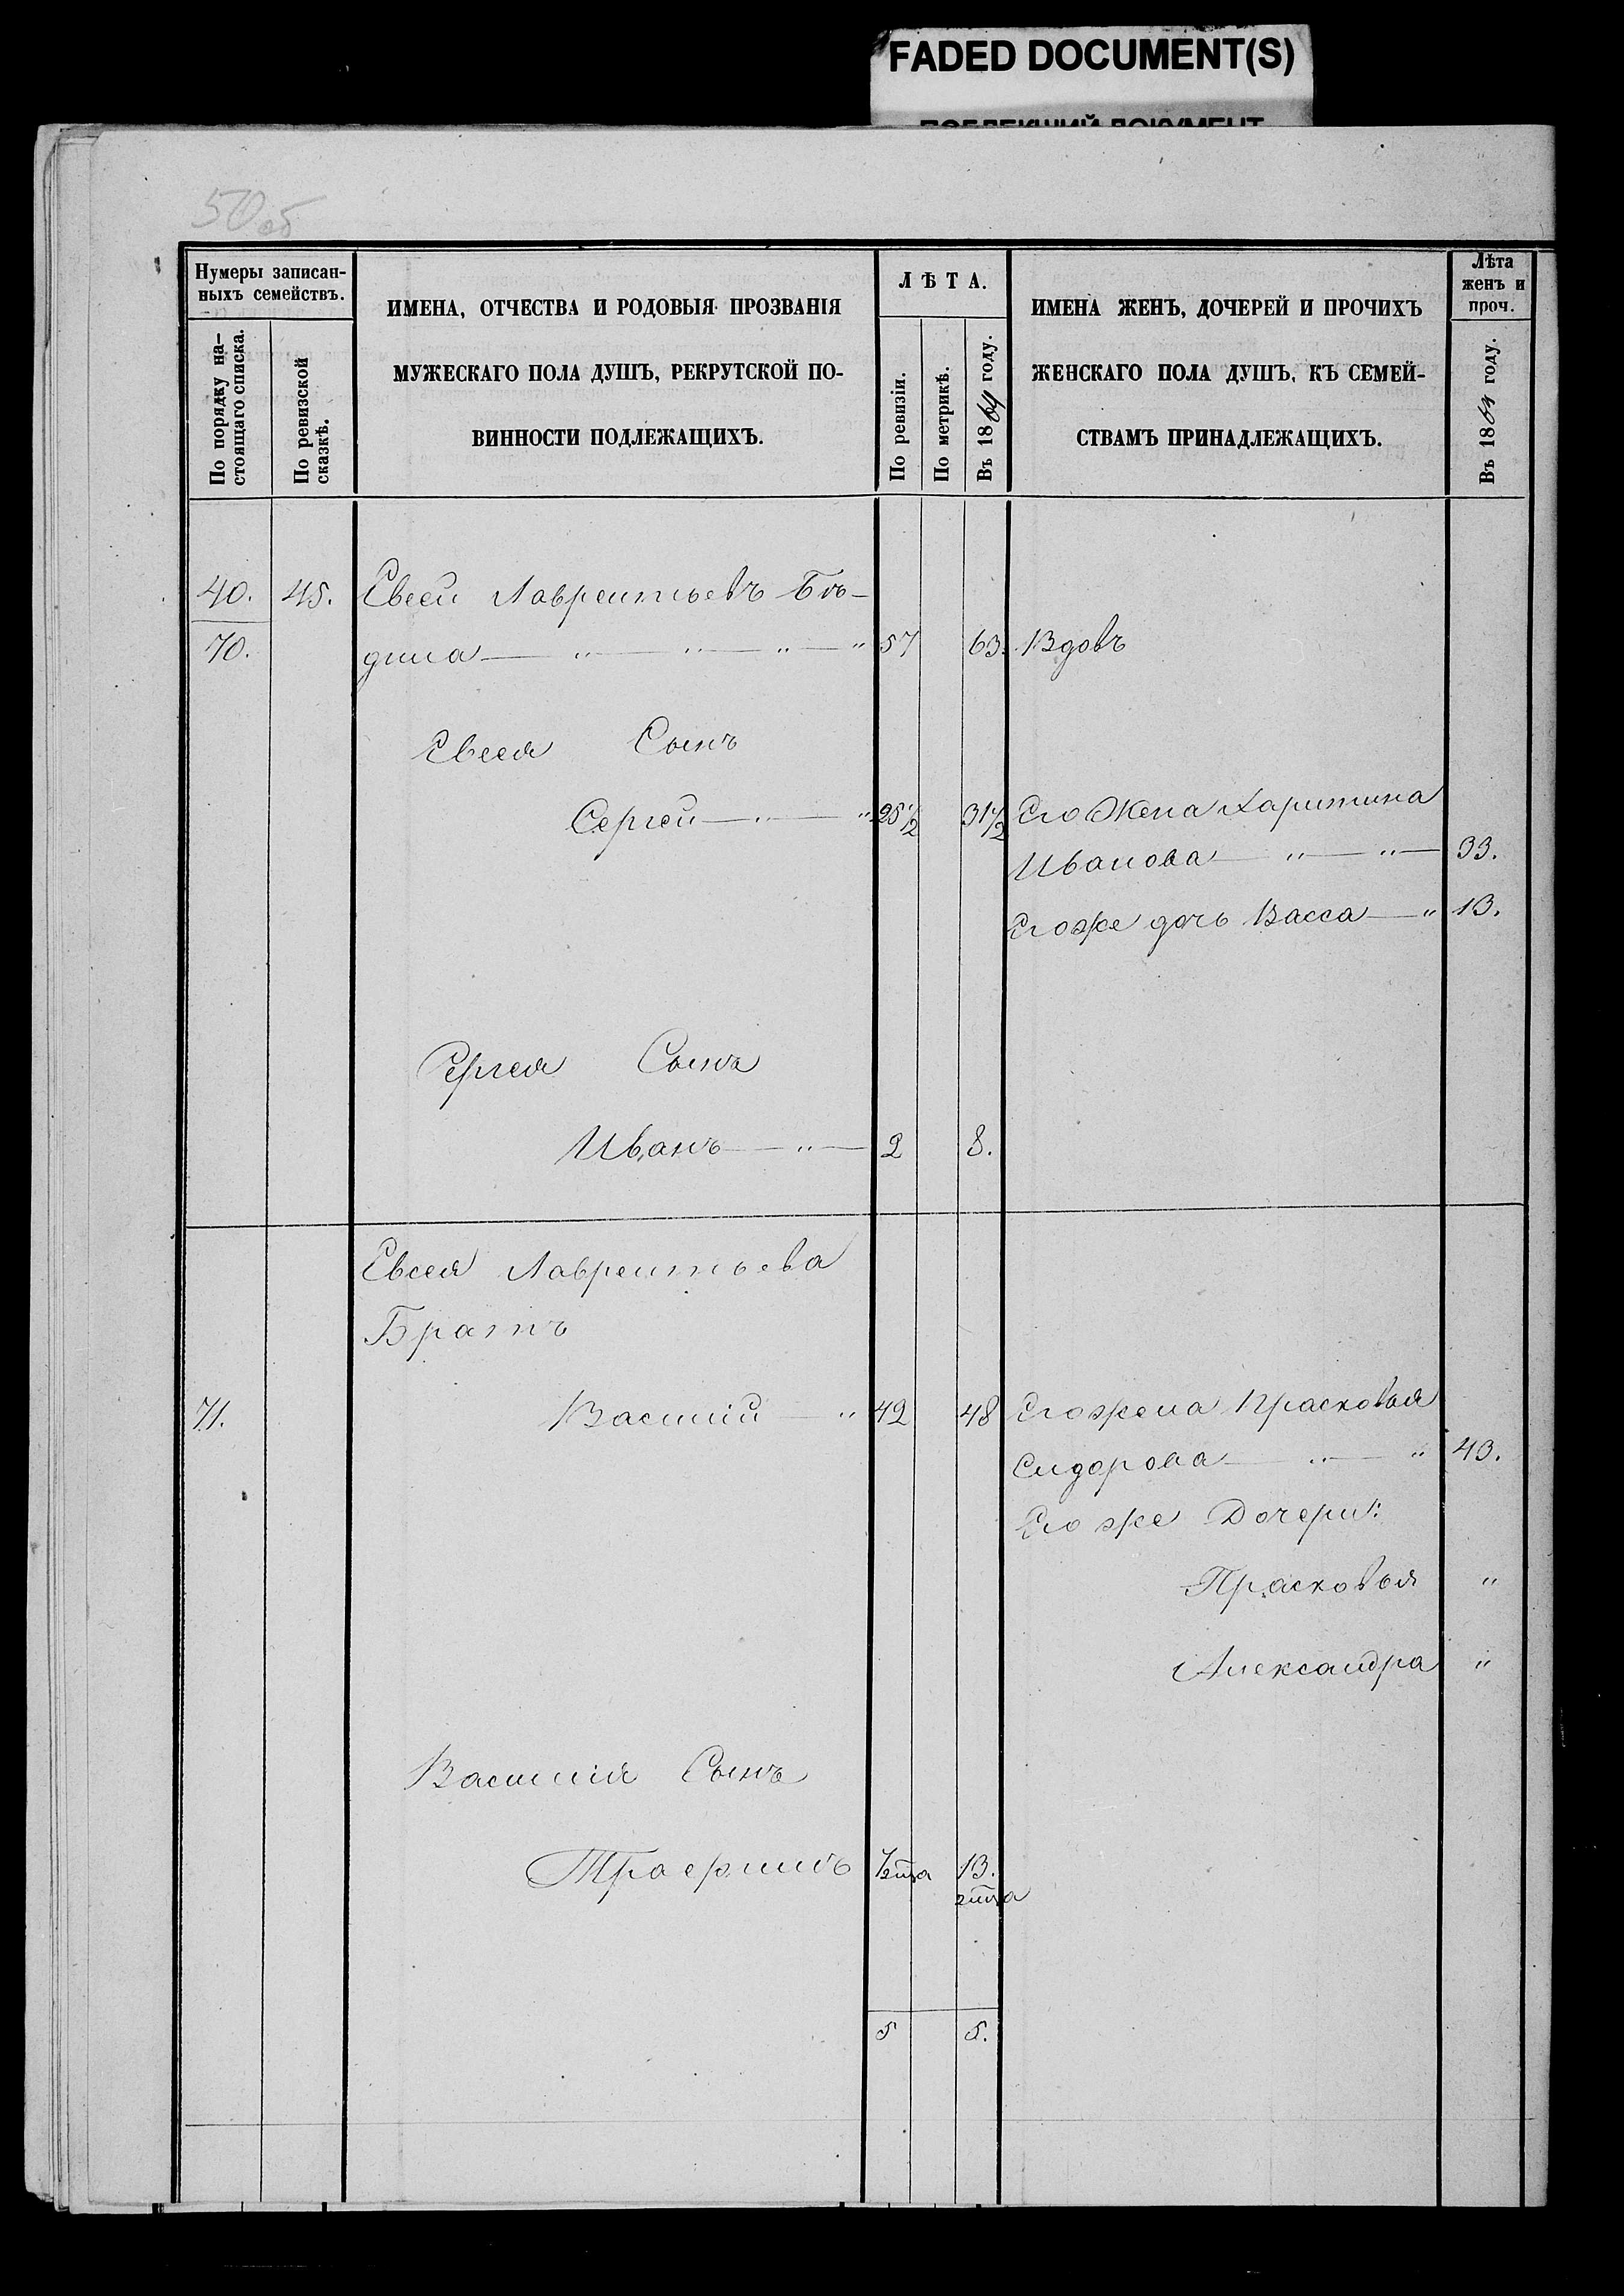 FADED DOCUMENT(S)
ПОБЛЕКШИЙ ДОКУМЕНТ
50об
Нумеры записан-
ныхъ семействъ.
По порядку на-
стоящаго списка.
По ревизской
сказкѣ.
ИМЕНА, ОТЧЕСТВА И РОДОВЫЯ ПРОЗВАНІЯ
МУЖЕСКАГО ПОЛА ДУШЪ, РЕКРУТСКОЙ ПО-
ВИННОСТИ ПОДЛЕЖАЩИХЪ.
ЛѢТА.
По ревизіи.
По метрикѣ.
Въ 1864 году.
ИМЕНА ЖЕНЪ, ДОЧЕРЕЙ И ПРОЧИХЪ
ЖЕНСКАГО ПОЛА ДУШЪ, КЪ СЕМЕЙ-
СТВАМЪ ПРИНАДЛЕЖАЩИХЪ.
Лѣта
женъ и
проч.
Въ 1864 году.
40. 45. Евсей Лаврентьевъ Бѣ-
70. дила — " — " — " — " 57 63. Вдовъ
Евсея Сынъ
Сергей — " — " 25 1/2 31 1/2 Его Жена Харитина
Иванова — " — " — 33.
Его же дочь Васса — " 13.
Сергея Сынъ
Иванъ — " — 2 8.
Евсея Лаврентьева
Братъ
71. Василий — " 42 48 Его жена Прасковья
Сидорова — " — " 43.
Его же Дочери:
Прасковья "
Александра "
Василия Сынъ
Трофимъ 13.
5 5.